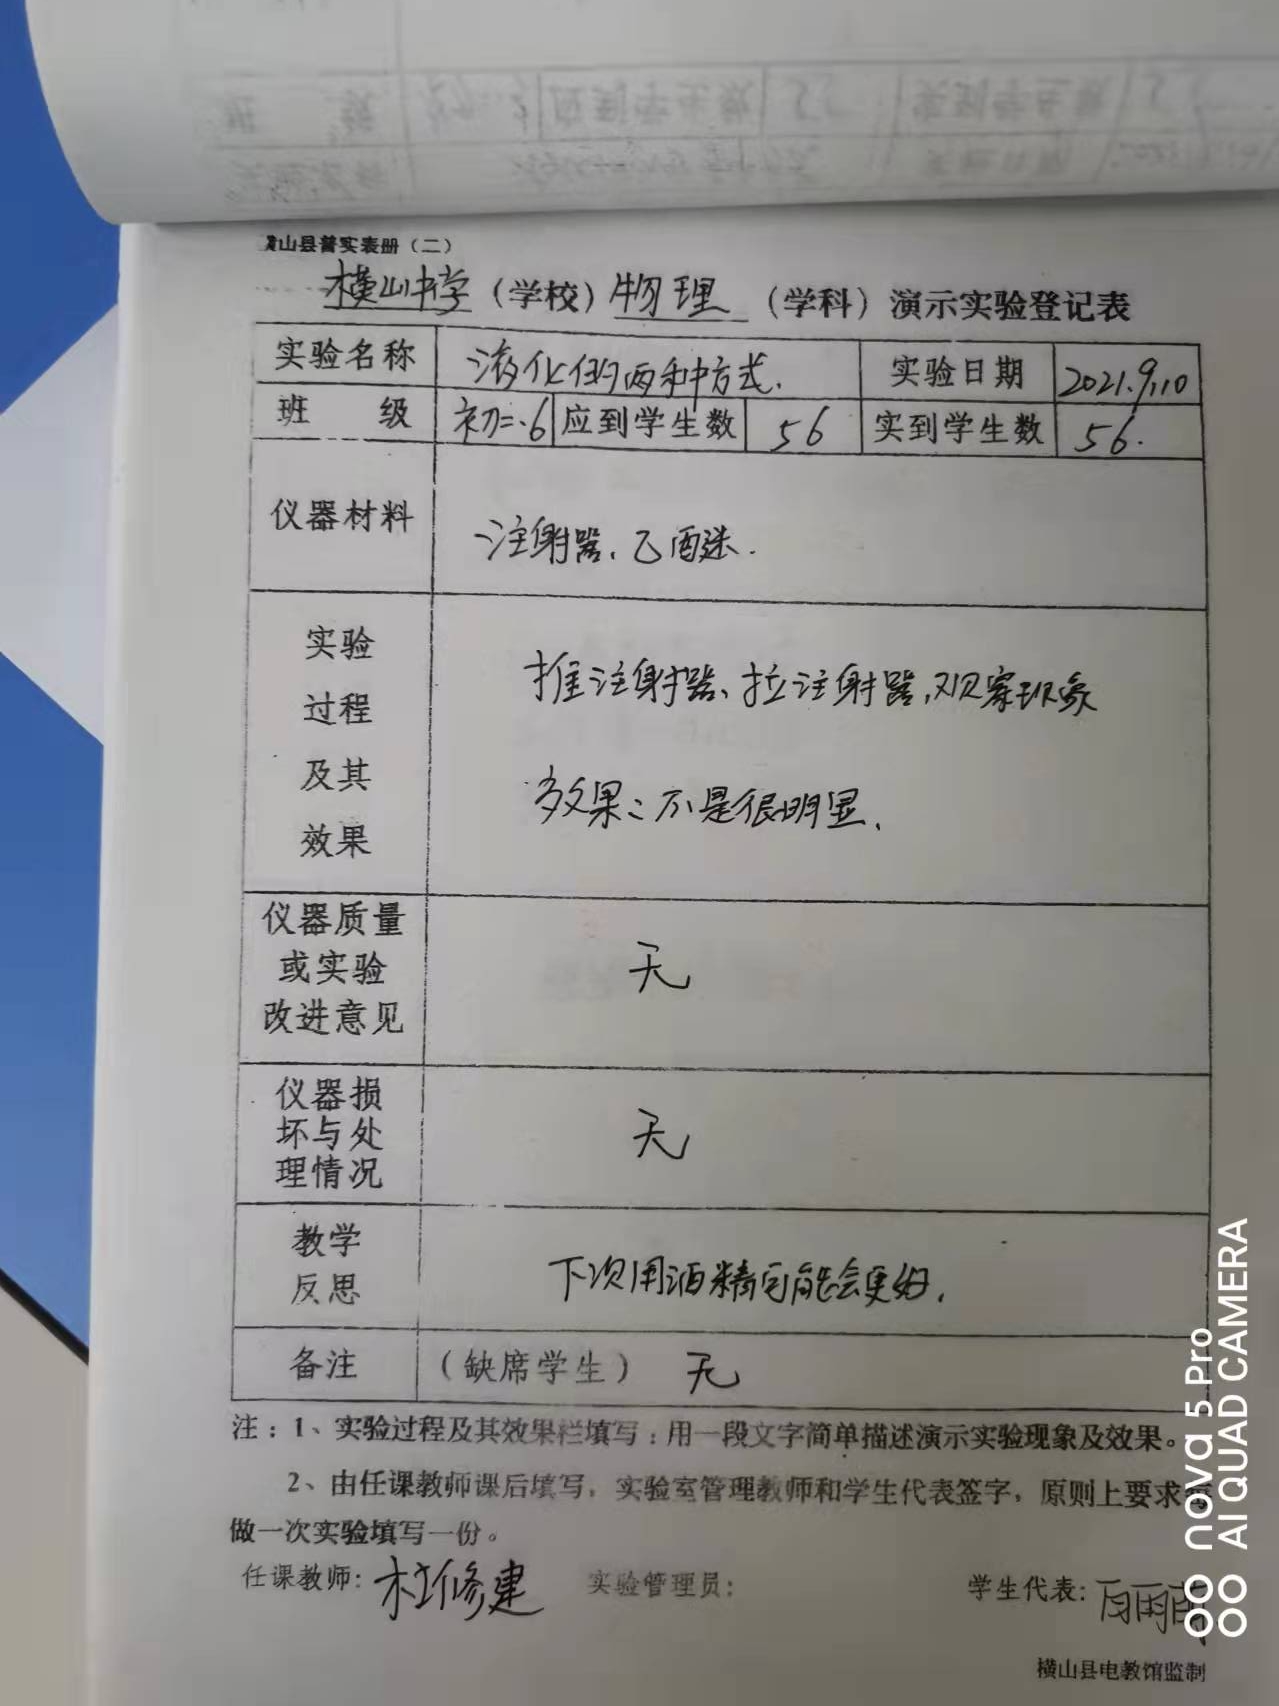 横山县普实表册（二）
横山中学（学校）物理（学科）演示实验登记表
实验名称 液化的两种方式. 实验日期 2021.9.10
班 级 初二.6 应到学生数 56 实到学生数 56.
仪器材料 注射器、乙醚.
实验
过程
及其
效果
推注射器、拉注射器,观察现象
效果:不是很明显.
仪器质量
或实验
改进意见
无
仪器损
坏与处
理情况
无
教学
反思
下次用酒精可能会更好.
备注 （缺席学生） 无
注：1、实验过程及其效果栏填写：用一段文字简单描述演示实验现象及效果。
2、由任课教师课后填写，实验室管理教师和学生代表签字，原则上要求每
做一次实验填写一份。
任课教师: 杜修建 实验管理员: 学生代表:
横山县电教馆监制
nova 5 Pro
AI QUAD CAMERA